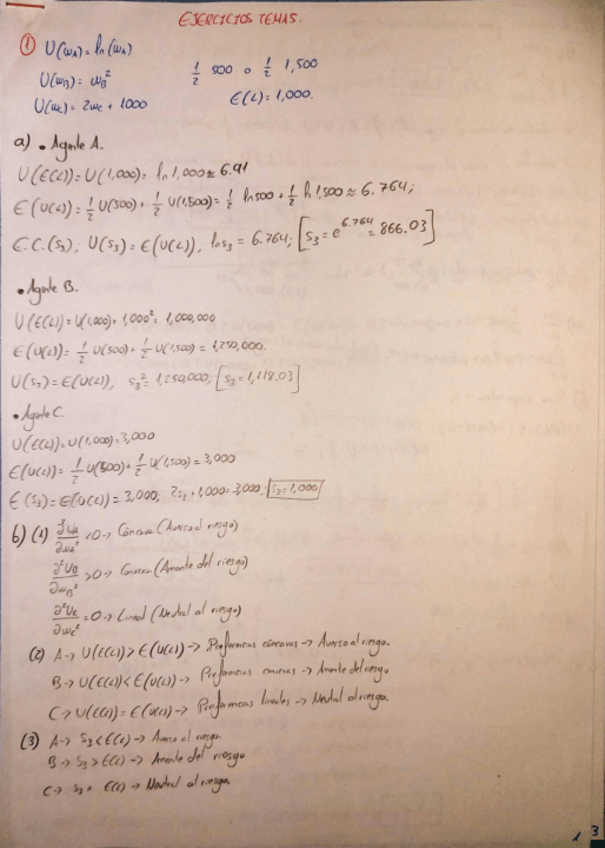 EJERCICIOS TEMA 5.
① U(ωA) = ln(ωA)
U(ωB) = ωB²
1/2 500 o 1/2 1,500
U(ωC) = 2ωC + 1000
E(L) = 1,000.
a) • Agente A.
U(E(L)) = U(1,000) = ln 1,000 ≈ 6.91
E(U(L)) = 1/2 U(500) + 1/2 U(1,500) = 1/2 ln 500 + 1/2 ln 1,500 ≈ 6.764;
E.C.(S3); U(S3) = E(U(L)), ln S3 = 6.764; [S3 = e^6.764 = 866.03]
• Agente B.
U(E(L)) = U(1,000) = 1,000² = 1,000,000
E(U(L)) = 1/2 U(500) + 1/2 U(1,500) = 1,250,000.
U(S3) = E(U(L)); S3² = 1,250,000; [S3 = 1,118.03]
• Agente C.
U(E(L)) = U(1,000) = 3,000
E(U(L)) = 1/2 U(500) + 1/2 U(1,500) = 3,000
E(S3) = E(U(L)) = 3,000; 2S3 + 1,000 = 3,000; [S3 = 1,000]
b) (1) ∂²UA/∂ωA² < 0 → Cóncava (Averso al riesgo)
∂²UB/∂ωB² > 0 → Convexa (Amante del riesgo)
∂²UC/∂ωC² = 0 → Lineal (Neutral al riesgo)
(2) A → U(E(L)) > E(U(L)) → Preferencias cóncavas → Averso al riesgo.
B → U(E(L)) < E(U(L)) → Preferencias convexas → Amante del riesgo
C → U(E(L)) = E(U(L)) → Preferencias lineales → Neutral al riesgo.
(3) A → S3 < E(L) → Averso al riesgo.
B → S3 > E(L) → Amante del riesgo
C → S3 = E(L) → Neutral al riesgo.
1 3